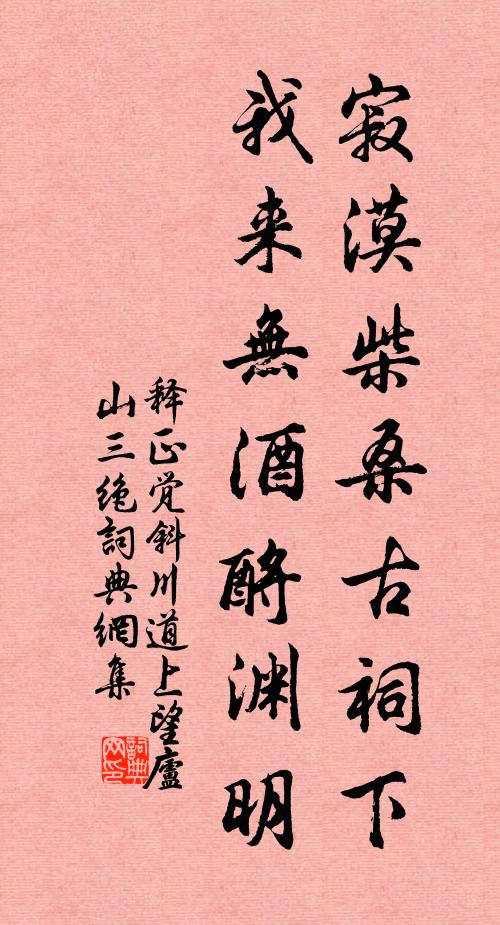 寂漠柴桑古祠下
我来無酒酹渊明
释正觉斜川道上望廬
山三绝詞典網集
詞典
网印